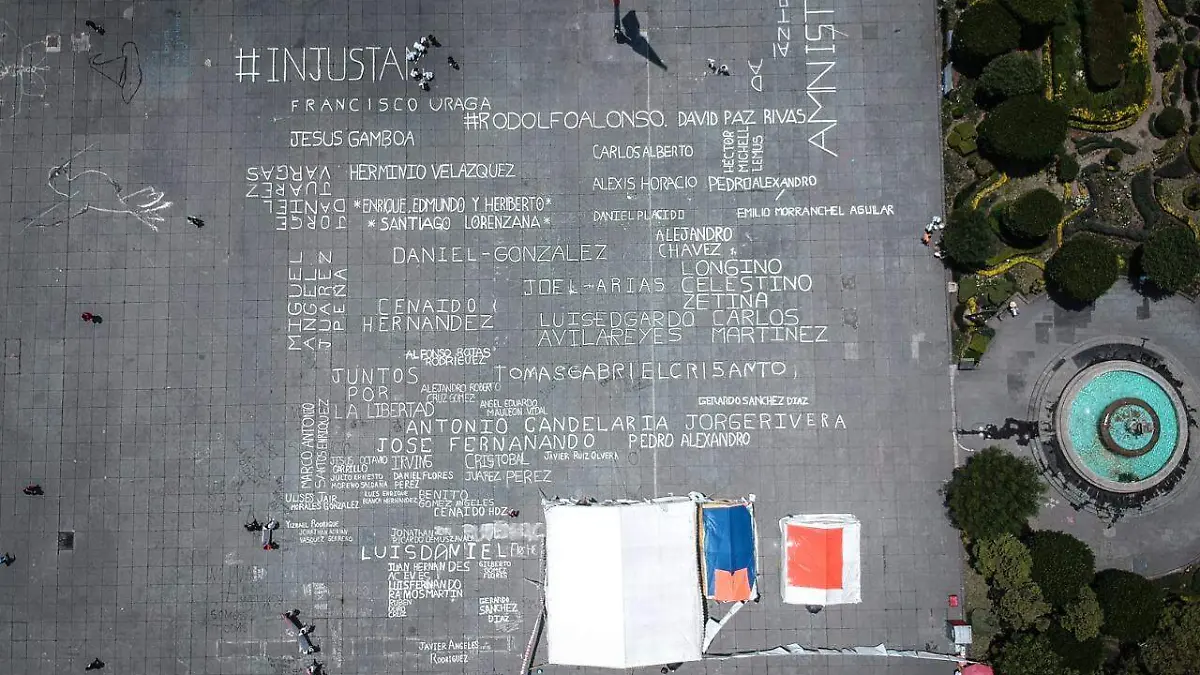 #INJUSTA
AMNIST
FRANCISCO URAGA
#RODOLFOALONSO. DAVID PAZ RIVAS
JESUS GAMBOA
CARLOS ALBERTO
HÉCTOR
MICHELL
LEMUS
JORGE
DANIEL
JUAREZ
VARGAS
HERMINIO VELAZQUEZ
ALEXIS HORACIO
PEDRO ALEXANDRO
*ENRIQUE, EDMUNDO Y HERIBERTO*
* SANTIAGO LORENZANA*
DANIEL PLACIDO
EMILIO MORRANCHEL AGUILAR
ALEJANDRO
CHAVEZ
DANIEL-GONZALEZ
MIGUEL
ANGUEL
JUAREZ
PEÑA
JOEL-ARIAS
LONGINO
CELESTINO
ZETINA
CENAIDO
HERNANDEZ
LUISEDGARDO
AVILAREYES
CARLOS
MARTINEZ
ALFONSO ROJAS
RODRIGUEZ
JUNTOS
POR
LA LIBERTAD
TOMASGABRIELCRISANTO,
ALEJANDRO ROBERTO
CRUZ GOMEZ
ANGEL EDUARDO
MAULEON VIDAL
GERARDO SANCHEZ DIAZ
ANTONIO CANDELARIA JORGERIVERA
MARCO ANTONIO
SANTOS ENRIQUEZ
JOSE FERNANANDO
PEDRO ALEXANDRO
JAVIER RUIZ OLVERA
JESUS OCTAVIO
CARRILLO
IRVINS
CRISTOBAL
JULIO ERNESTO
MORENO SALDAÑA
DANIEL FLORES
PEREZ
JUAREZ PEREZ
ULISES JAIR
MORALES GONZALEZ
LUIS ENRIQUE
BENITO
GOMEZ ANGELES
CENAIDO HDZ
YIZRAEL RODRIGUE
JONATHAN ADRIAN
VASQUEZ GUERRERO
JONATHAN
RICARDO LEMUS ZAVALA
LUISDANIEL
JUAN HERNANDES
ACEVES
LUISFERNANDO
RAMOSMARTIN
RUBEN
CRUZ
GILBERTO
GOMEZ
FLORES
GERARDO
SANCHEZ
DIAZ
JAVIER ANGELES
RODRIGUEZ